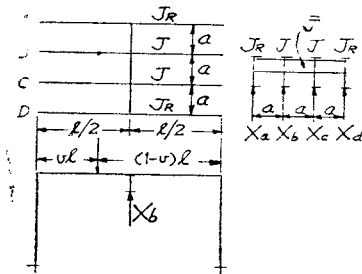 J_R
J
C J
D J_R
a
a
a
l/2 l/2
υl (1-υ)l
X_b
J_R J J J_R
a a a
X_a X_b X_c X_d